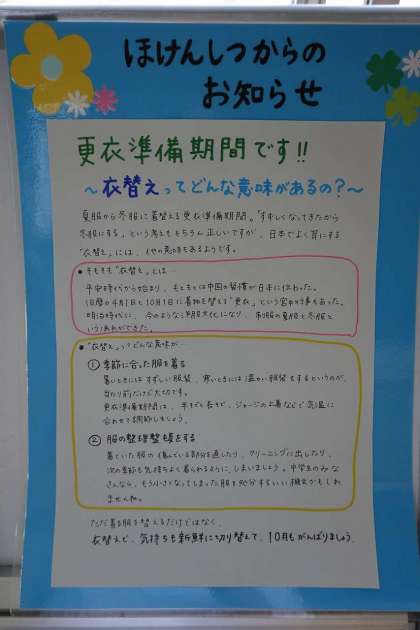 ほけんしつからの
お知らせ
更衣準備期間です!!
～衣替えってどんな意味があるの?～
夏服から冬服に着替える更衣準備期間。"すずしくなってきたから
冬服にする"という考えももちろん正しいですが、日本でよく耳にする
"衣替え"には、他の意味もあるようです。
●そもそも"衣替え"とは…
平安時代から始まり、もともとは中国の習慣が日本に伝わった。
旧暦の4月1日と10月1日に着物を替える"更衣"という宮中行事もあった。
明治時代に、今のような洋服文化になり、制服の夏服と冬服と
いう流れができた。
●"衣替え"ってどんな意味が…
① 季節に合った服を着る
暑いときにはすずしい服装、寒いときには温かい服装をするというのが、
当たり前だけど大切です。
更衣準備期間は、半そで長そで、ジャージの上着などで気温に
合わせて調節しましょう。
② 服の整理整頓をする
着ていた服の傷んでいる部分を直したり、クリーニングに出したり、
次の季節も気持ちよく着られるように、しまいましょう。中学生のみな
さんなら、もう小さくなってしまった服を処分するいい機会かもしれ
ませんね。
ただ着る服を替えるだけではなく、
衣替えで、気持ちも新鮮に切り替えて、10月もがんばりましょう。